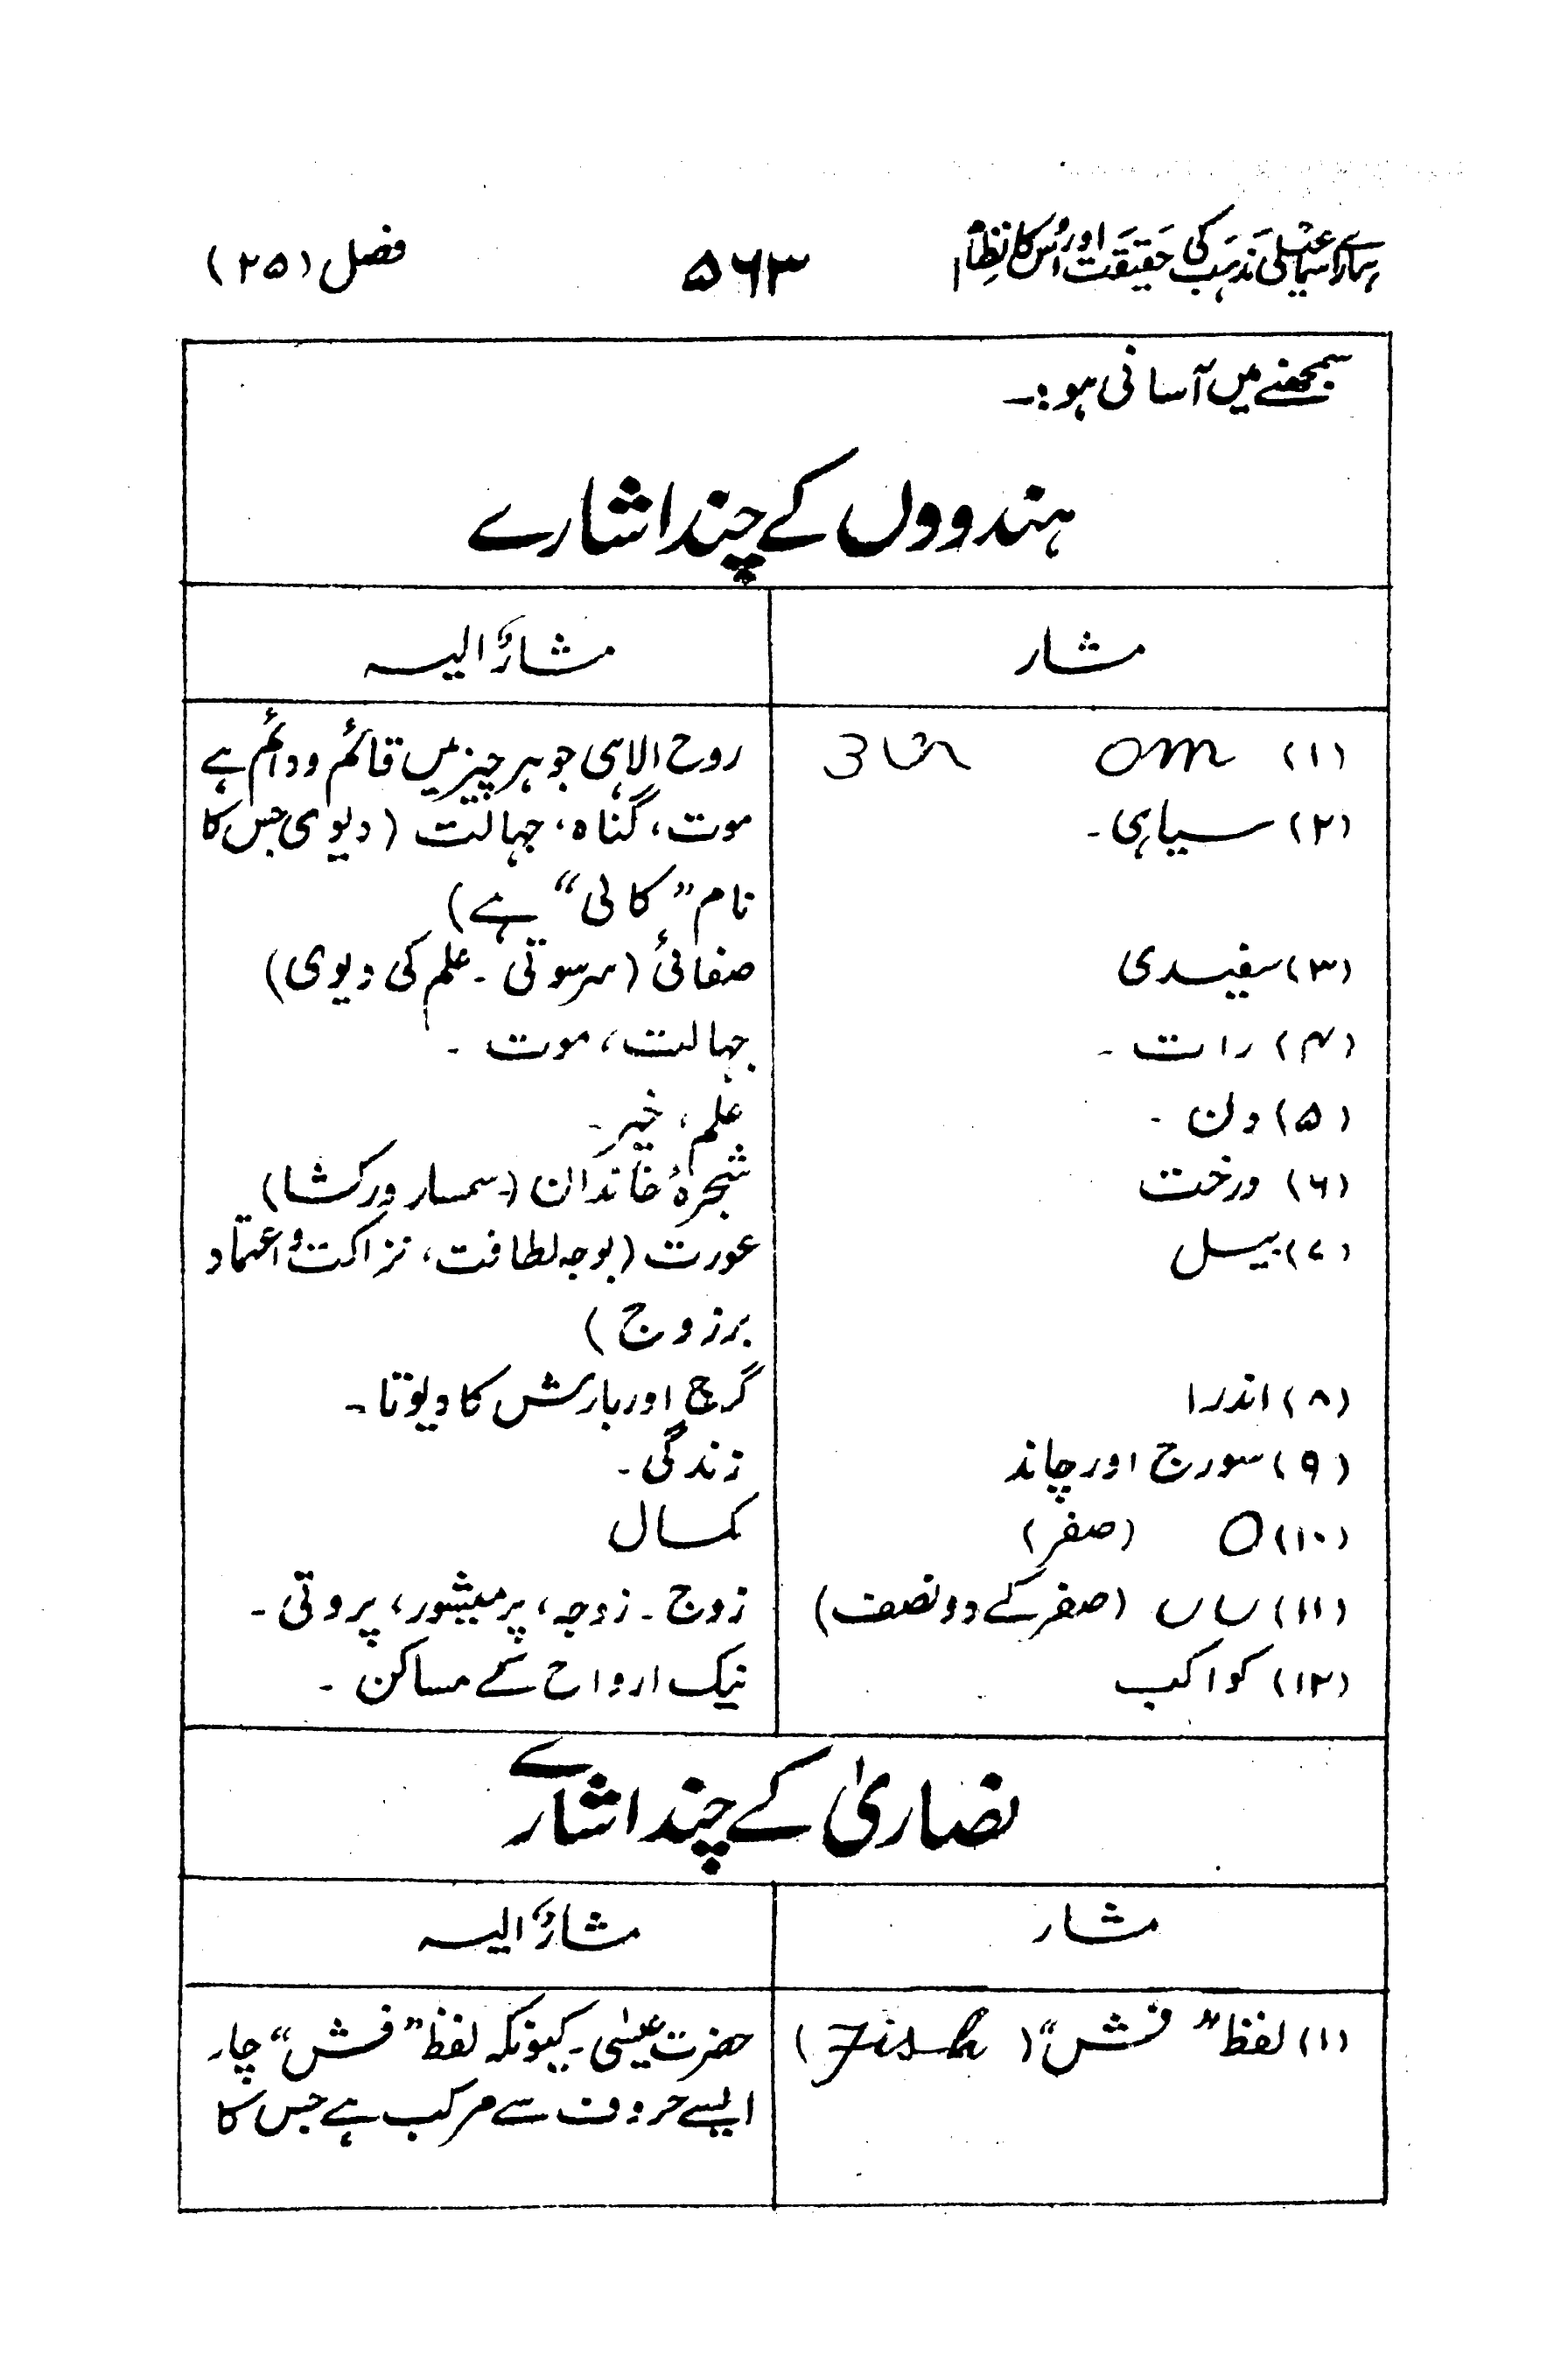 ہمارے اسماعیلی مذہب کی حقیقت اور اُس کا نظام ۵۶۳ فصل (۲۵)
سمجھنے میں آسانی ہو:۔
ہندووں کے چند اشارے
مشار مشارٌ الیہ
(۱) om روح الاہی جو ہر چیز میں قائم و دائم ہے
(۲) سیاہی۔ موت، گناہ، جہالت (دیوی جس کا
نام ”کالی“ ہے)
(۳) سفیدی صفائی (سرسوتی ۔ علم کی دیوی)
(۴) رات ۔ جہالت، موت ۔
(۵) دن ۔ علم، خیر۔
(۶) درخت شجرۂ خاندان (سمسار ورکشا)
(۷) بیل عورت (بوجہ لطافت، نزاکت و اعتماد
برزوج)
(۸) اندرا گرج اور بارش کا دیوتا۔
(۹) سورج اور چاند زندگی ۔
(۱۰) O (صفر) کمال
(۱۱) ں ں (صفر کے دو نصف) زوج ۔ زوجہ، پرمیشور، پروتی ۔
(۱۲) کواکب نیک ارواح کے مساکن ۔
نصاریٰ کے چند اشارے
مشار مشارٌ الیہ
(۱) لفظ ”فش“ (Fish) حضرت عیسٰی۔ کیونکہ لفظ ”فش“ چار
ایسے حروف سے مرکب ہے جس کا